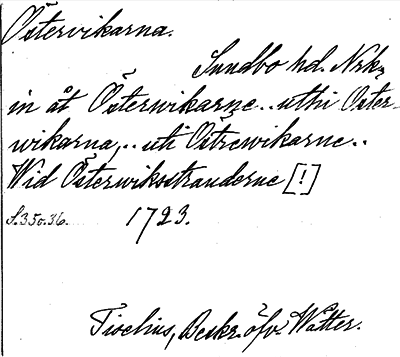 Östervikarna.
Sundbo hd. Nrk.
in åt Österwikarne.. uthi Öster-
wikarna,.. uti Östrewikarne..
Wid Österwiksstranderne [!]
S. 35 o. 36. 1723.
Tiselius, Beskr. öfv. Wätter.